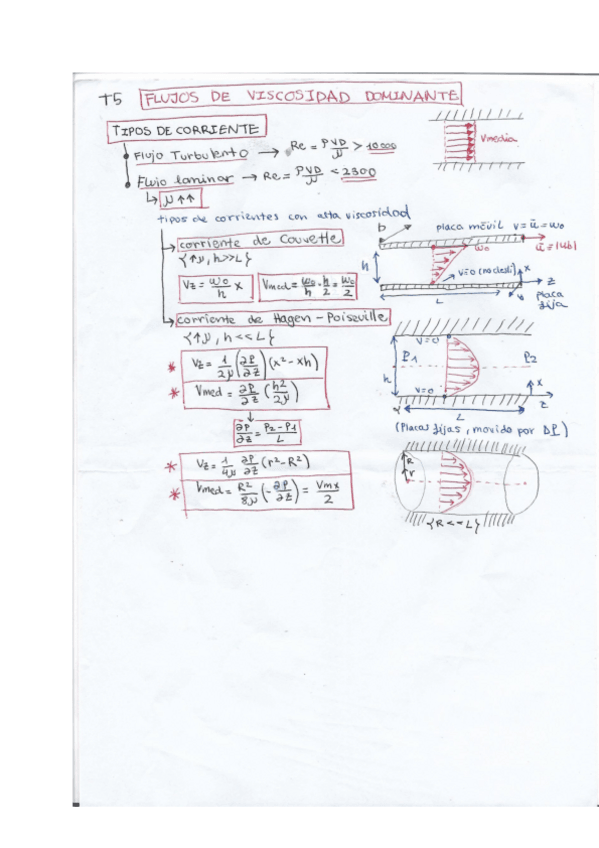 T5 FLUJOS DE VISCOSIDAD DOMINANTE
TIPOS DE CORRIENTE
Flujo Turbulento → Re = ρVD/μ > 10000
Vmedia
Flujo laminar → Re = ρVD/μ < 2300
↳ μ↑↑
tipos de corrientes con alta viscosidad
→ corriente de Couvette
{↑μ, h>>L}
Vz = wo/h x
Vmed = wo/h · h/2 = wo/2
b
placa móvil v = ū = wo
wo
ū = |ub|
h
v=0 (no desli)
x
z
y
L
placa fija
→ corriente de Hagen - Poiseville
{↑μ, h<<L}
* Vz = 1/2μ (∂P/∂z) (x² - xh)
* Vmed = ∂P/∂z (h²/2μ)
↓
∂P/∂z = P2 - P1/L
v=0
P1
P2
h
v=0
x
z
L
(Placas fijas, movido por ΔP)
* Vz = 1/4μ ∂P/∂z (r² - R²)
* Vmed = R²/8μ (-∂P/∂z) = Vmx/2
R
r
{R<<L}